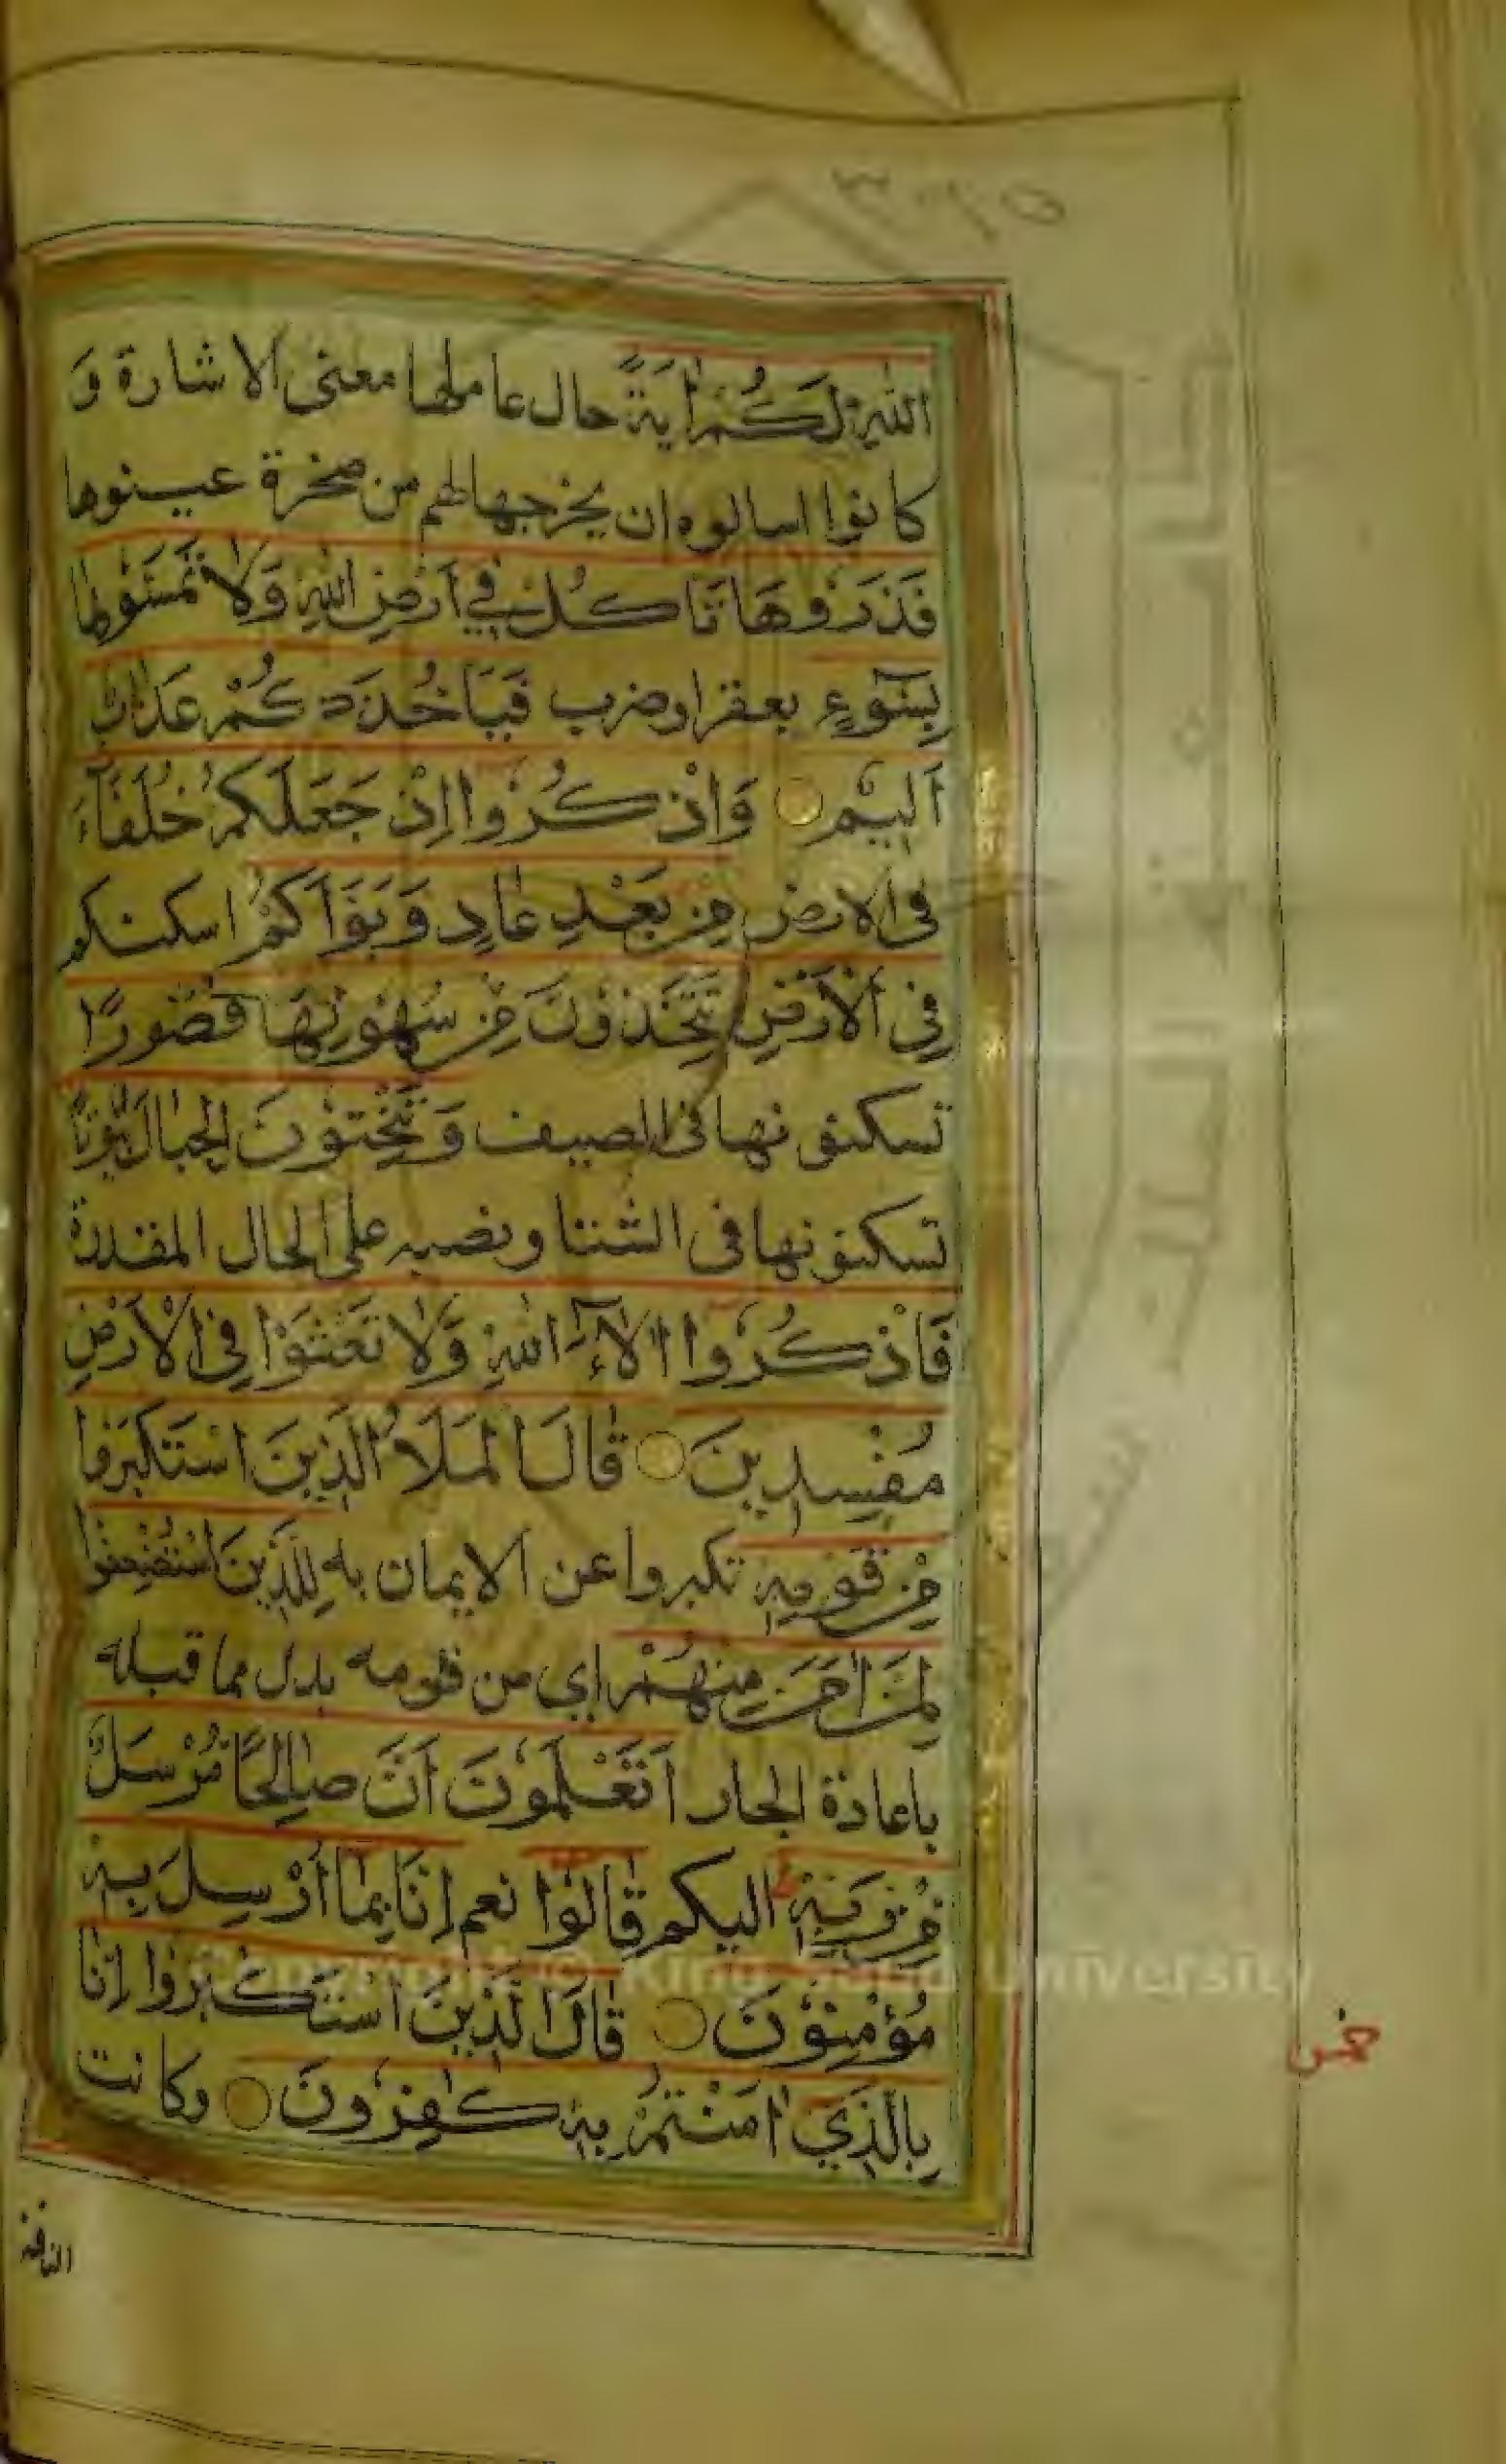 ٣٠٦٥
اللهِ لَكُمْ اٰيَةً حال عاملها معنى الاشارة وَ
كانوا اسالوه ان يخرجها لهم من صخرة عينوها
فَذَرُوْهَا تَاكُلْ فِي اَرْضِ اللهِ وَلَا تَمَسُّوْهَا
بِسُوْٓءٍ بعقر او ضرب فَيَاخُذَكُمْ عَذَابٌ
اَلِيْمٌ وَاذْكُرُوْا اِذْ جَعَلَكُمْ خُلَفَآءَ
فى الارض مِنْ بَعْدِ عَادٍ وَبَوَّاَكُمْ اسكنكم
فِى الْاَرْضِ تَتَّخِذُوْنَ مِنْ سُهُوْلِهَا قُصُوْرًا
تسكنونها فى الصيف وَتَنْحِتُوْنَ الْجِبَالَ بُيُوْتًا
تسكنونها فى الشتا ونصبه على الحال المقدرة
فَاذْكُرُوْا اٰلَآءَ اللهِ وَلَا تَعْثَوْا فِى الْاَرْضِ
مُفْسِدِيْنَ قَالَ الْمَلَاُ الَّذِيْنَ اسْتَكْبَرُوْا
مِنْ قَوْمِهٖ تكبروا عن الايمان به لِلَّذِيْنَ اسْتُضْعِفُوْا
لِمَنْ اٰمَنَ مِنْهُمْ اي من قومه بدل مما قبله
باعادة الجار اَتَعْلَمُوْنَ اَنَّ صَالِحًا مُرْسَلٌ
مِنْ رَبِّهٖ اليكم قَالُوْا نعم اِنَّا بِمَا اُرْسِلَ بِهٖ
مُؤْمِنُوْنَ قَالَ الَّذِيْنَ اسْتَكْبَرُوْا اِنَّا
بِالَّذِيْ اٰمَنْتُمْ بِهٖ كٰفِرُوْنَ وكانت
الناقة
خمس
King Saud University